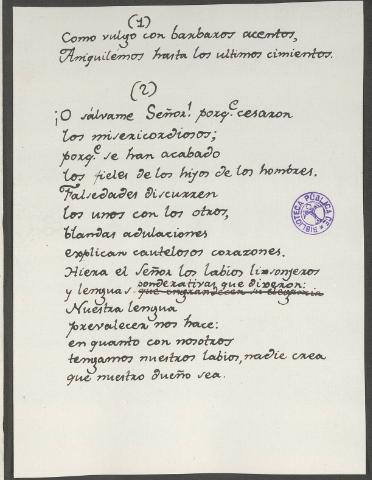 (1)
Como vulgo con barbaros acentos,
Aniquilemos hasta los ultimos cimientos.
(2)
¡O sálvame Señor! porq.e cesaron
los misericordiosos;
porq.e se han acabado
los fieles de los hijos de los hombres.
Falsedades discurren
los unos con los otros,
blandas adulaciones
explican cautelosos corazones.
Hiera el Señor los labios lisonjeros
ponderativas que dixeron:
y lenguas que engrandecen su elegancia
Nuestra lengua
prevalecer nos hace:
en quanto con nosotros
tengamos nuestros labios, nadie crea
que nuestro dueño sea.
BIBLIOTECA PÚBLICA